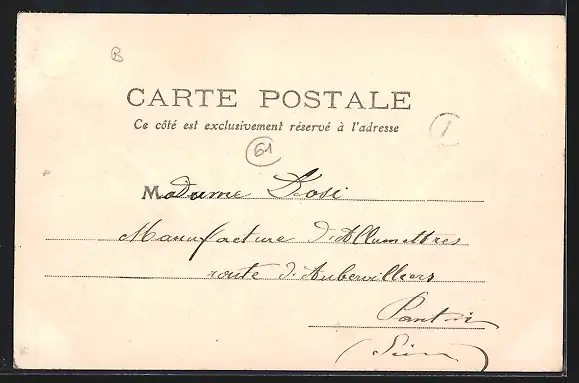 B
CARTE POSTALE
Ce côté est exclusivement réservé à l'adresse
1
61
Madame Rosi
Manufacture d'Allumettres
route d'Aubervilliers
Pantin
(Seine)